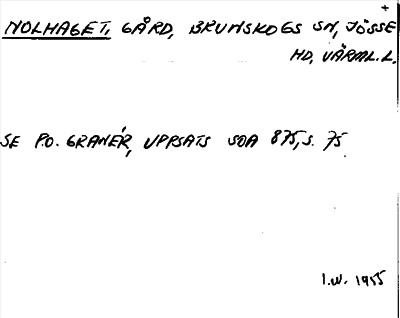 +
NOLHAGET, GÅRD, BRUNSKOGS SN, JÖSSE
HD, VÄRML. L.
SE P.O. GRANÉR, UPPSATS SOA 875, S. 75
I.W. 1955